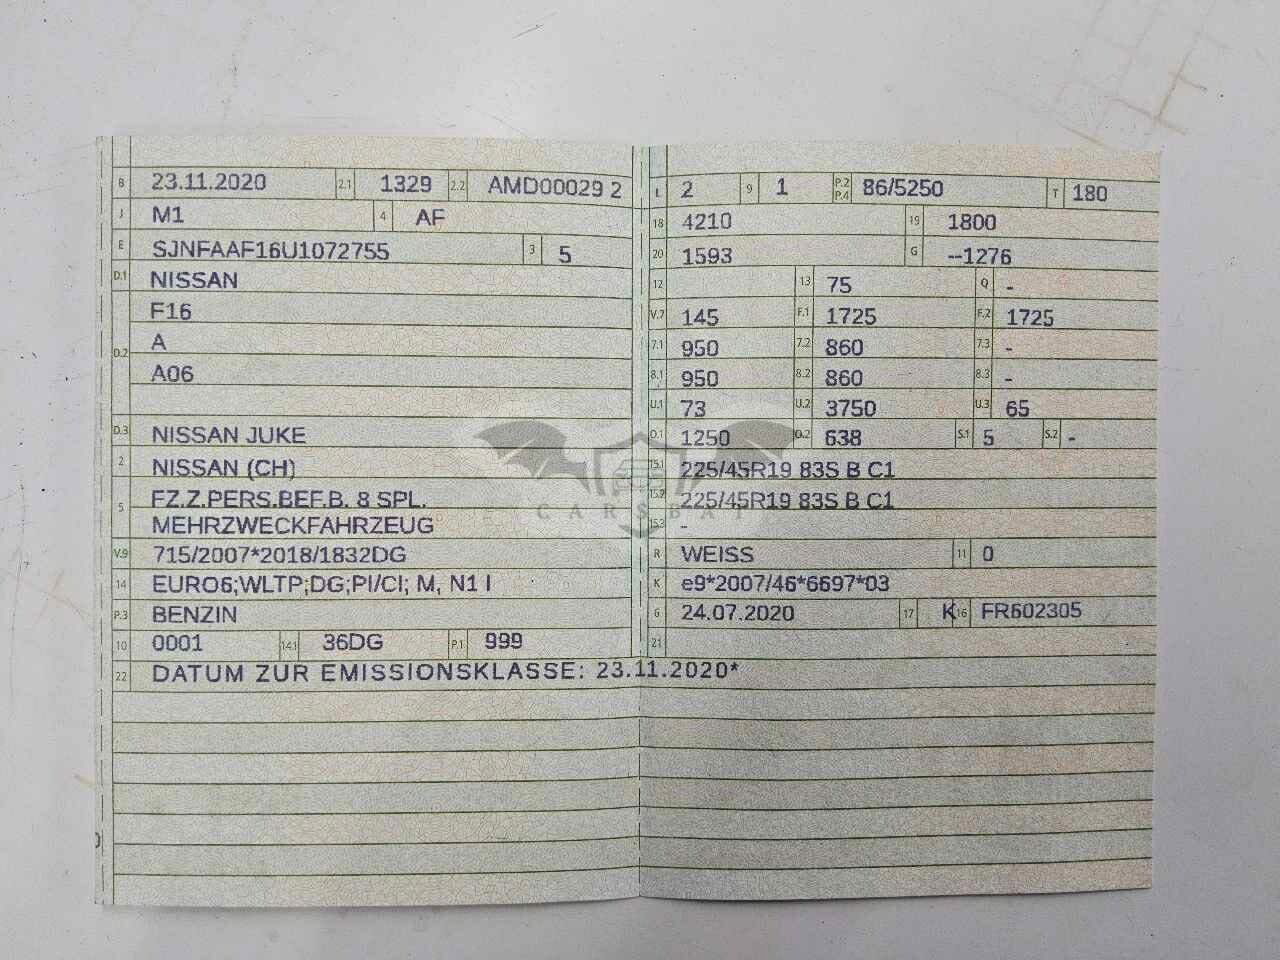 B 23.11.2020 2.1 1329 2.2 AMD00029 2
J M1 4 AF
E SJNFAAF16U1072755 3 5
D.1 NISSAN
F16
D.2 A
A06
D.3 NISSAN JUKE
2 NISSAN (CH)
5 FZ.Z.PERS.BEF.B. 8 SPL.
MEHRZWECKFAHRZEUG
V.9 715/2007*2018/1832DG
14 EURO6;WLTP;DG;PI/CI; M, N1 I
P.3 BENZIN
10 0001 14.1 36DG P.1 999
L 2 9 1 P.2 P.4 86/5250 T 180
18 4210 19 1800
20 1593 G --1276
12 13 75 Q -
V.7 145 F.1 1725 F.2 1725
7.1 950 7.2 860 7.3 -
8.1 950 8.2 860 8.3 -
U.1 73 U.2 3750 U.3 65
O.1 1250 O.2 638 S.1 5 S.2 -
15.1 225/45R19 83S B C1
15.2 225/45R19 83S B C1
15.3 -
R WEISS 11 0
K e9*2007/46*6697*03
6 24.07.2020 17 K 16 FR602305
21
22 DATUM ZUR EMISSIONSKLASSE: 23.11.2020*
CARSBAT